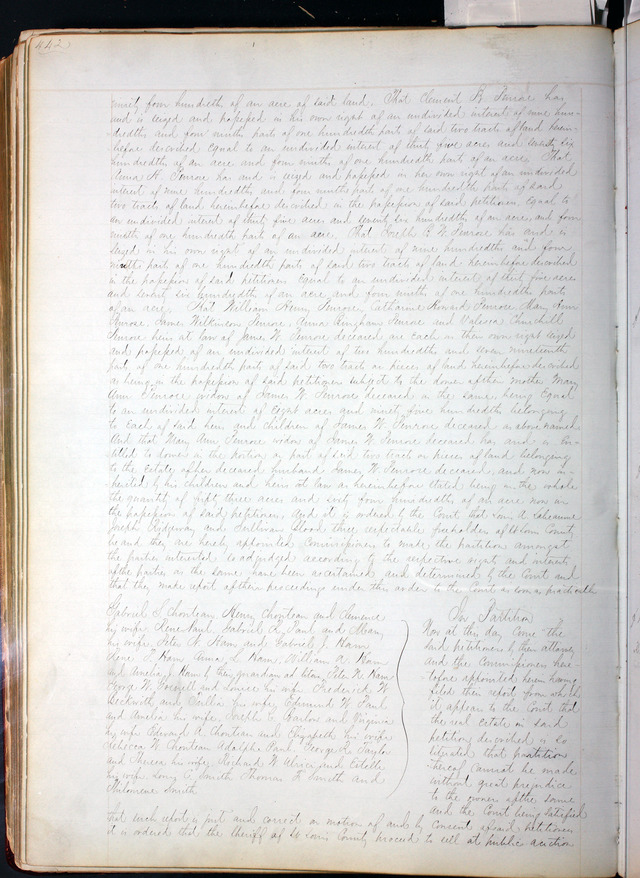 442
ninety four hundredth of an acre of said land. That Clement B. Penrose has
and is seized and possessed in his own right of an undivided interest of nine hun-
dredths and four ninth parts of one hundredth part of said two tracts of land herein-
before described equal to an undivided interest of thirty five acres and seventy six
hundredths of an acre and four ninths of one hundredth part of an acre. That
Anna H. Penrose has and is seized and possessed in her own right of an undivided
interest of nine hundredths and four ninths parts of one hundredth part of said
two tracts of land hereinbefore described in the possession of said petitioners equal to
an undivided interest of thirty five acres and seventy six hundredths of an acre and four
ninths of one hundredth part of an acre. That C. B. Penrose has and is
seized in his own right of an undivided interest of nine hundredths and four
ninths part of one hundredth part of said two tracts of land hereinbefore described
in the possession of said petitioners equal to an undivided interest of thirty five acres
and seventy six hundredths of an acre and four ninths of one hundredth parts
of an acre. That William Henry Penrose, Catharine Howard Penrose, Mary Ann
Penrose, James Wilkinson Penrose, Anna Bingham Penrose and Valeria Churchill
Penrose heirs at law of James W. Penrose deceased are each in their own right seized
and possessed of an undivided interest of two hundredths and seven nineteenth
part of one hundredth part of said two tracts or pieces of land hereinbefore described
as being in the possession of said petitioners subject to the dower of their mother Mary
Ann Penrose widow of James W. Penrose deceased in the same, being equal
to an undivided interest of eight acres and ninety five hundredths belonging
to each of said heirs and children of James W. Penrose deceased as above named
And that Mary Ann Penrose widow of James W. Penrose deceased has and is en-
titled to dower in the portion or part of said two tracts or pieces of land belonging
to the Estate of her deceased husband James W. Penrose deceased, and now in-
herited by his children and heirs at law as hereinbefore stated being in the whole
the quantity of fifty three acres and sixty four hundredths of an acre now in
the possession of said petitioners. And it is ordered by the Court that Louis A. Labeaume
Joseph Ridgeway and Sullivan Blood three respectable freeholders of St Louis County
be and they are hereby appointed Commissioners to make the partition amongst
the parties interested so adjudged according to the respective rights and interests
of the parties as the same have been ascertained and determined by the Court and
that they make report of their proceedings under this order to the Court as soon as practicable
Gabriel S. Chouteau, Henry Chouteau and Clemence
his wife, Rene Paul, Gabriel R. Paul and Mary
his wife, Peter N. Ham, and Gabriel J. Ham
Rene P. Ham, Anna L. Ham, William A. Ham
and Amelia J. Ham by their guardian ad litem Peter N. Ham
George W. and Louise his wife, Frederick W
Beckwith and Cecilia his wife, Edmund W. Paul
and Amelia his wife, E. Barlow and Virginia
his wife Edward A. Chouteau and Elizabeth his wife
Rebecca W. Chouteau Adolphe Paul, George R. Taylor
and Theresa his wife, Richard W. Ulrici and Estelle
his wife, Louis A. Smith, Thomas F. Smith and
Philomene Smith
In Partition
Now at this day come the
said petitioners by their attorney
and the Commissioners here-
tofore appointed herein having
filed their report from which
it appears to the Court that
the real estate in said
petition described is so
situated that partition
thereof cannot be made
without great prejudice
to the owners of the same
and the Court being satisfied
that such report is just and correct on motion of and by Consent of said petitioners
it is ordered that the Sheriff of St Louis County proceed to sell at public auction